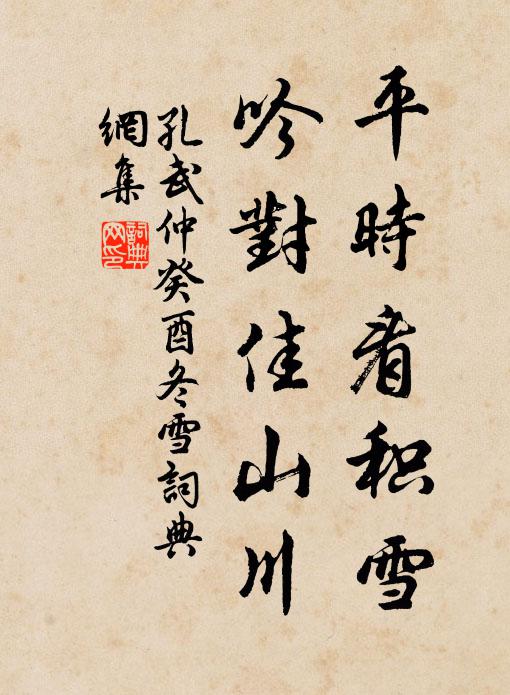 平時看积雪
吟對佳山川
孔武仲癸酉冬雪詞典
網集
詞典
网印